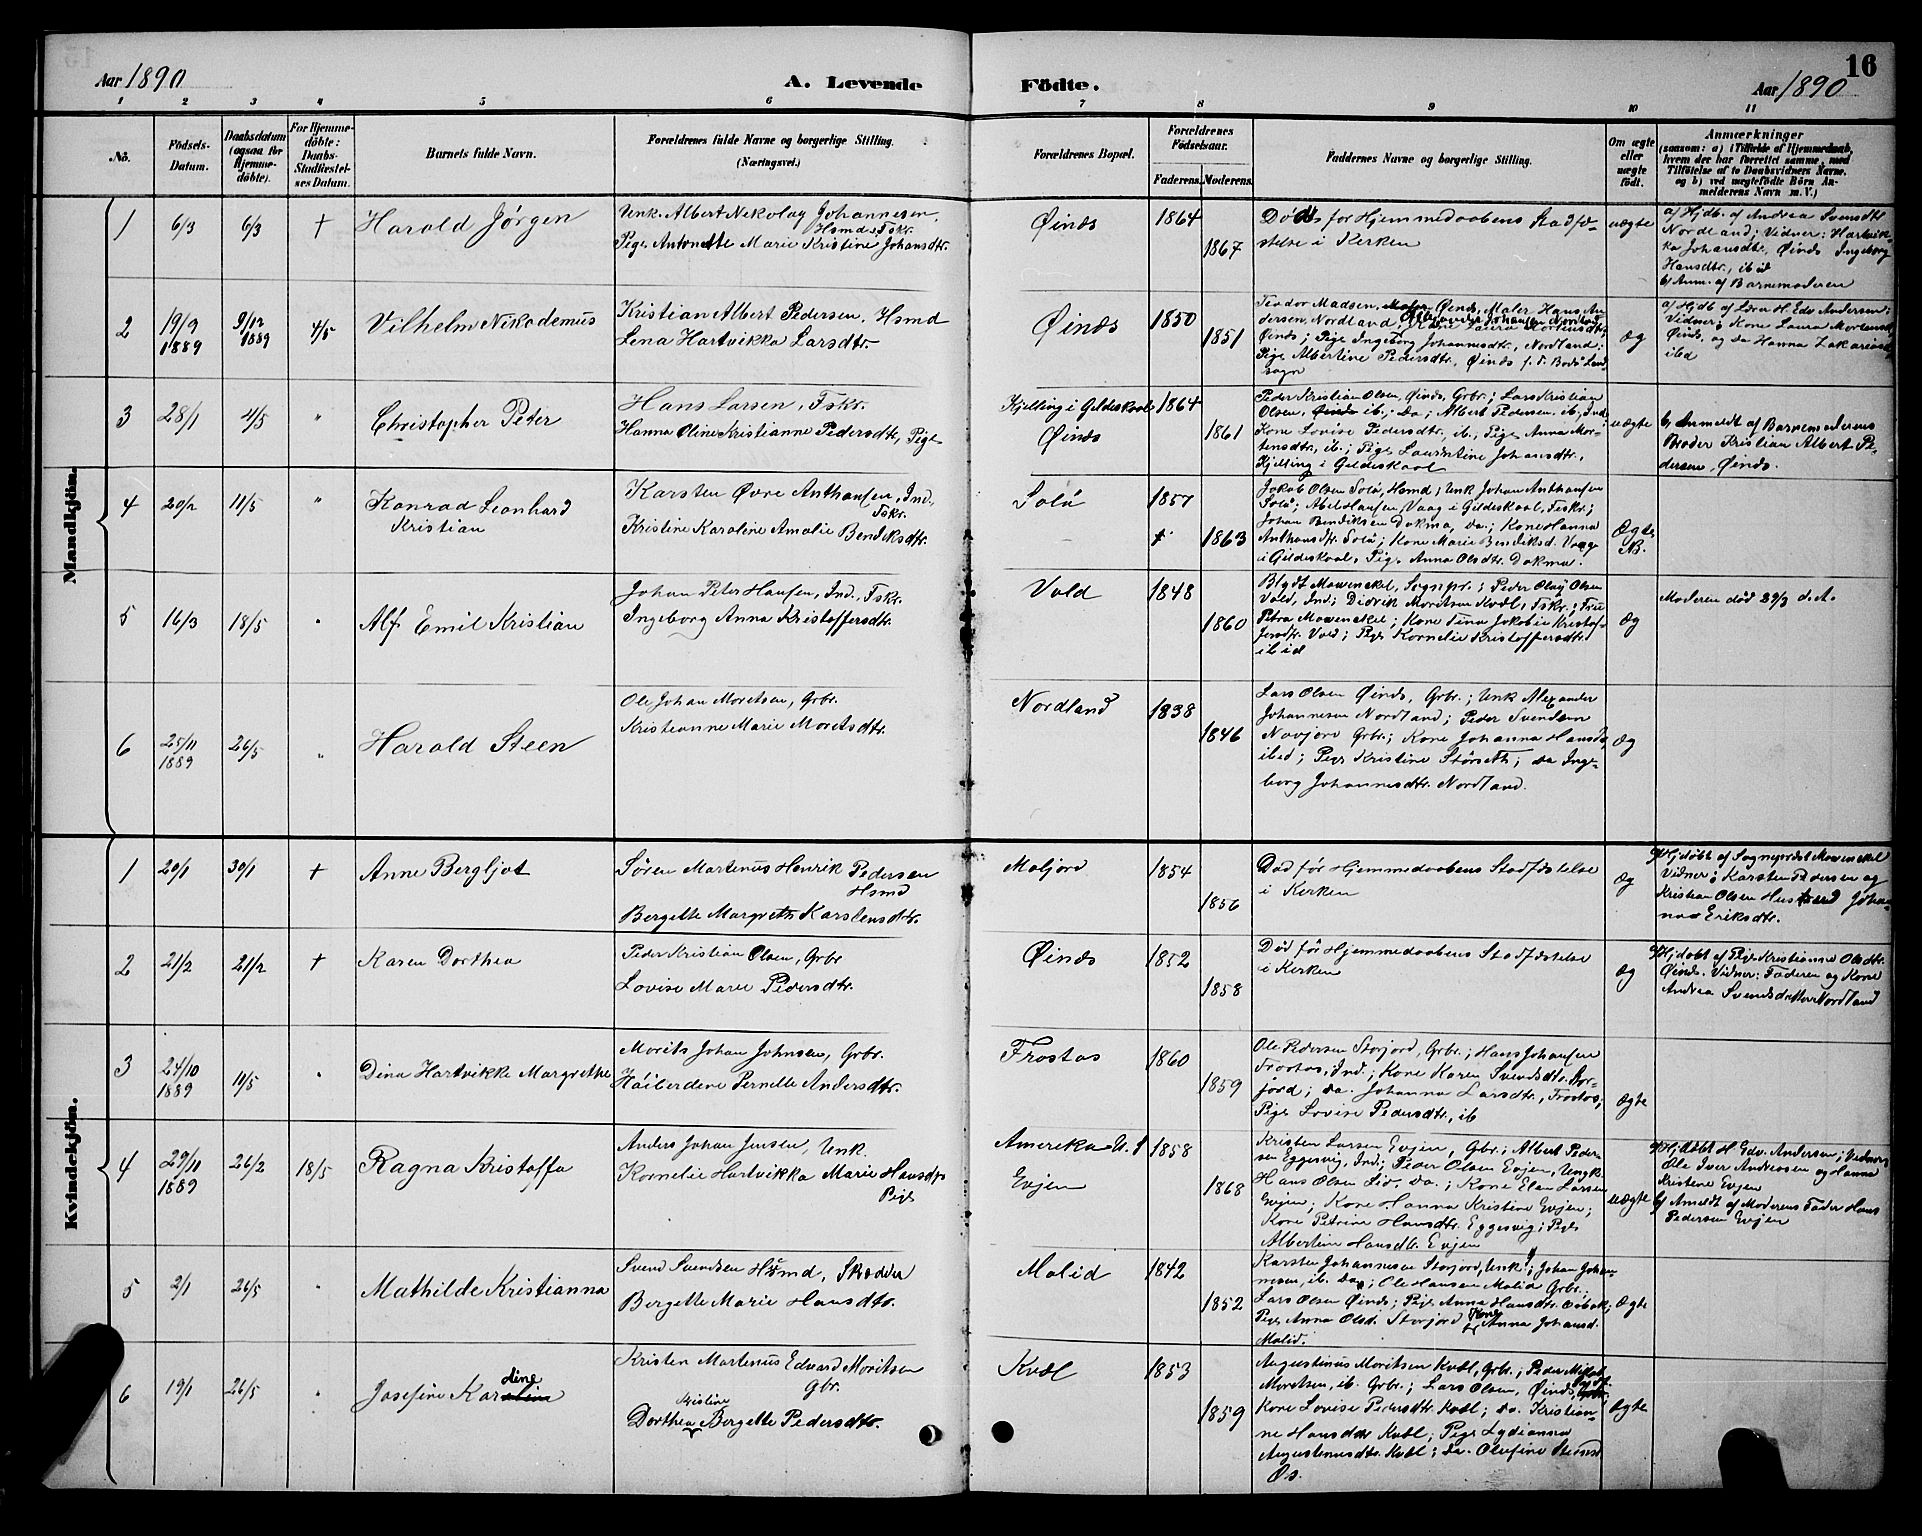 Aar 1890
A. Levende Födte.
Aar 1890
16
1 2 3 4 5 6 7 8 9 10 11
No.
Födsels-Datum.
Daabsdatum (ogsaa for Hjemmedöbte).
For Hjemmedöbte: Daabs-Stadfestelses Datum.
Barnets fulde Navn.
Forældrenes fulde Navne og borgerlige Stilling.
(Næringsvei.)
Forældrenes Bopæl.
Forældrenes Födselsaar.
Faderens. Moderens.
Faddernes Navne og borgerlige Stilling.
Om ægte eller uægte födt.
Anmærkninger
(saasom: a) i Tilfælde af Hjemmedaab, hvem der har forrettet samme, med Tilföielse af to Daabsvidners Navne, og b) ved uægtefödte Börn Anmelderens Navn m. V.)
Mandkjön.
1 6/3 6/3 † Harald Jørgen
Unk. Albert Nikolay Johannesen,
Hsmds. Fskr.
Pige Antonette Marie Kristine Johansdtr.
Øinds 1864 1867
Død før Hjemmedaabens Stadfæ-
stelse i Kirken
uægte
a/ Hjdb. af Andrea Svendsdtr
Nordland; Vidner: Hartvik-
ka Johansdtr, Øinds Ingeborg
Hansdtr., ibid
b/ Anm. af Barnemoderen
2 19/9 1889 9/12 1889 4/5 Vilhelm Nikodemus
Kristian Albert Pedersen, Hsmd
Lina Hartvikka Larsdtr.
Øinds 1850 1851
Teodor Madsen, Øinds, Maler Hans An-
dersen, Nordland,
Øinds; Pige Ingeborg Johannesdtr., Nordland;
Pige Albertine Pedersdtr., Øinds f. T. Bodø Land
sogn
æg
a/ Hjdb. af H. Edv. Andersen;
Vidner: Kone Laura Mortensd.
Øinds, og da Hanna Zakariasd.
ibd
3 28/1 4/5 " Christopher Peter
Hans Larsen, Fskr.
Hanna Oline Kristianne Pedersdtr, Pige
Kjelling i Gildeskaal
Øinds 1864 1861
Peder Kristian Olsen, Øinds, Grbr; Lars Kristian
Olsen, ib., da; Albert Pedersen, ib, Ind
Kone Lovise Pedersdtr., ib., Pige Anna Mor-
tensdtr., ib.; Pige Laurentine Johansdtr.,
Kjelling i Gildeskaal
uægte
b/ Anmeldt af Barnemoderens
Broder Kristian Albert Pe-
dersen, Øinds.
4 20/2 11/5 " Konrad Leonhard
Kristian
Karsten Øvre Anthonsen, Ind.,
Fskr.
Kristine Karoline Amalie Bendiksdtr.
Solø 1857 † 1863
Jakob Olsen Solø, Hsmd; Unk Johan Anthonsen
Solø; Abel Hansen Vaag i Gildeskaal, Fiskr;
Johan Bendiksen Dokma, da.; Kone Hanna
Anthonsdtr. Solø; Kone Marie Bendiksd. Vaag
i Gildeskaal, Pige Anna Olsdtr. Dokma
Ægte
NB.
5 16/3 18/5 " Alf Emil Kristian
Johan Peter Hansen, Ind., Fskr.
Ingeborg Anna Kristoffersdtr.
Vold 1848 1860
Blydt Mowinckel, Sognepr.; Peder Olaij Olsen
Vold, Ind; Didrik Moritsen Kvæl, Fskr.; Frue
Petra Mowinckel; Kone Tina Jakobie Kristof-
fersdtr. Vold; Pige Kornelie Kristoffersdtr.
ibid
Æg
Moderen død 29/3 d. A.
6 25/11 1889 26/5 " Harald Steen
Ole Johan Moritsen, Grbr.
Kristianne Marie Moritsdtr.
Nordland 1838 1846
Lars Olsen Øinds, Grbr.; Unk Alexander
Johannesen Nordland; Peder Svendsen
Navjord Grbr; Kone Johanna Hansdtr.
ibid; Pige Kristine Størseth; da Inge-
borg Johannesdtr. Nordland.
Æg
Kvindekjön.
1 20/1 30/1 † Anne Bergljot
Søren Martenus Henrik Pedersen
Hsmd
Bergette Margrethe Karstensdtr.
Maljord 1854 1856
Død før Hjemmedaabens Stadfæstelse
i Kirken
Æg
a/ Hjdøbt af Sognepræst Mowinckel
Vidner: Karsten Pedersen og
Kristian Olsen Hustrud Johan-
na Eriksdtr.
2 21/2 21/2 † Karen Dorthea
Peder Kristian Olsen, Grbr
Lovise Marie Pedersdtr.
Øinds 1852 1858
Død før Hjemmedaabens Stadfæstelse
i Kirken
Æg
a/ Hjdøbt af Pige Kristianne Olsdtr.
Øinds. Vidner: Faderen og Kone
Andrea Svendsdatter Nordland
3 24/10 1889 11/5 " Dina Hartvikke Margrethe
Morits Johan Johnsen, Grbr.
Haiberdine Pernelle Andersdtr.
Frostos 1860 1859
Ole Pedersen Storjord, Grbr.; Hans Johansen
Frostos, Ind.; Kone Karen Svendsdtr. Stor-
jord; da. Johanna Larsdtr, Frostos;
Pige Lovise Pedersdtr., ib
Ægte
4 29/10 1889 26/2 18/5 Ragna Kristoffa
Anders Johan Jensen, Unk.
Kornelie Hartvikka Marie Hansdtr
Pige
Amerika U. S
Evjen 1858 1868
Kristen Larsen Evjen, Gbr.; Albert Peder-
sen Eggesvig, Ind; Peder Olsen Evjen, Ungk.
Hans Olsen Lio, da.; Kone Elen Larsen
Evjen; Kone Hanna Kristine Evjen;
Kone Petrine Hansdtr. Eggesvig; Pige
Albertine Hansdtr. Evjen
uægte
a/ Hjdøbt H. Edv. Andersen; Vidner
Ole Iver Andreassen og Hanna
Kristine Evjen
b/ Anmeldt af Moderens Fader Hans
Pedersen Evjen
5 2/1 26/5 " Mathilde Kristianna
Svend Svendsen Hsmd, Skrædder
Bergette Marie Hansdtr.
Molid 1842 1852
Karsten Johannesen Storjord, Unk; Johan Johan-
nesen, ib. da; Ole Hansen Molid Grbr.;
Lars Olsen Øinds; Pige Anna Hansdtr.
Pige Anna Olsd. Storjord Kone Anna Johansd.
Molid.
Ægte
6 19/1 26/5 " Josefine Karoline
dine
Kristen Martenus Edvard Moritsen
Gbr.
Kristine
Dorthea Bergette Pedersdtr.
Kvæl 1853 1859
Augustinus Moritsen Kvæl, Grbr.; Peder
Moritsen, ib. Grbr.; Lars Olsen, Øinds,
Kone Lovise Pedersdtr Kvæl; da Kristian-
ne Hansdtr Kvæl; Pige Lydianna
Augustinusdtr. Kvæl; da. Olufine
Øs.
Ægte